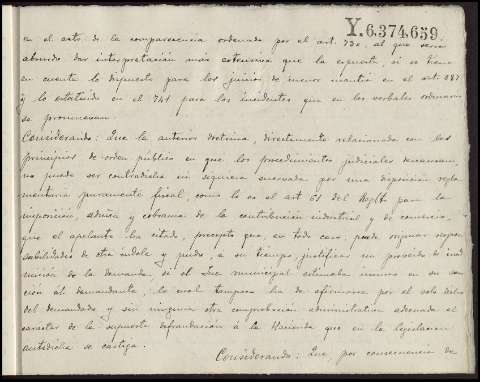 Y.6.374.659
en el acto de la comparecencia ordenada por el art. 730, al que seria
absurdo dar interpretación más extensiva que la expuesta, si se tiene
en cuenta lo dispuesto para los juicios de menor cuantia en el art. 687
y lo estatuido en el 741 para los incidentes que en los verbales ordinarios
se promuevan.
Considerando: Que la anterior doctrina, directamente relacionada con los
principios de orden público en que los procedimientos judiciales descansan,
no puede ser contradicha ni siquiera enervada por una disposición regla-
mentaria puramente fiscal, como lo es el art 61 del Regto para la
imposición, admón y cobranza de la contribución industrial y de comercio,
que el apelante ha citado, precepto que, en todo caso, puede originar respon-
sabilidades de otra índole y pudo, a su tiempo, justificar un proveido de inad-
misión de la demanda, si el Juez municipal estimaba incurso en su san-
ción al demandante, lo cual tampoco ha de afirmarse por el solo dicho
del demandado y sin ninguna otra comprobación administrativa adecuada al
carácter de la supuesta defraudación á la Hacienda que en la legislación
antedicha se castiga.
Considerando: Que, por consecuencia de